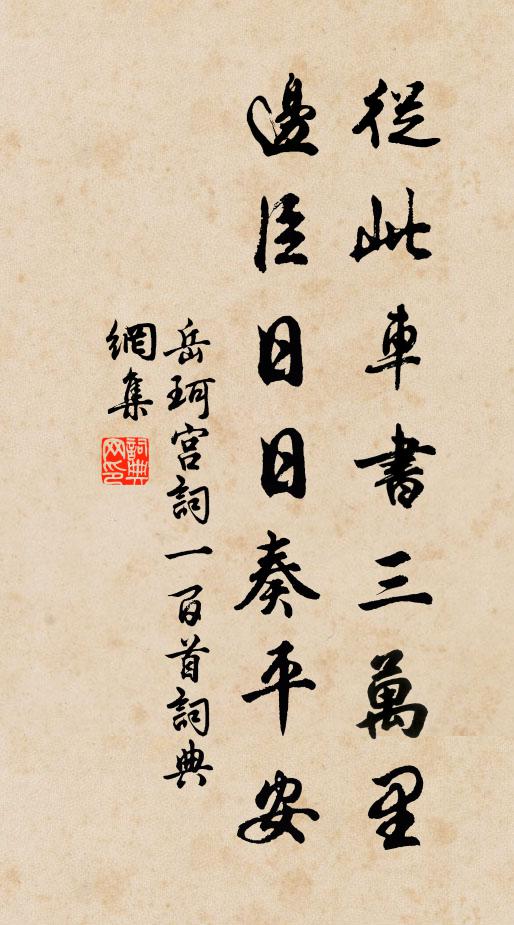 從此車書三萬里
邊臣日日奏平安
岳珂宮詞一百首詞典
網集
詞典
网印